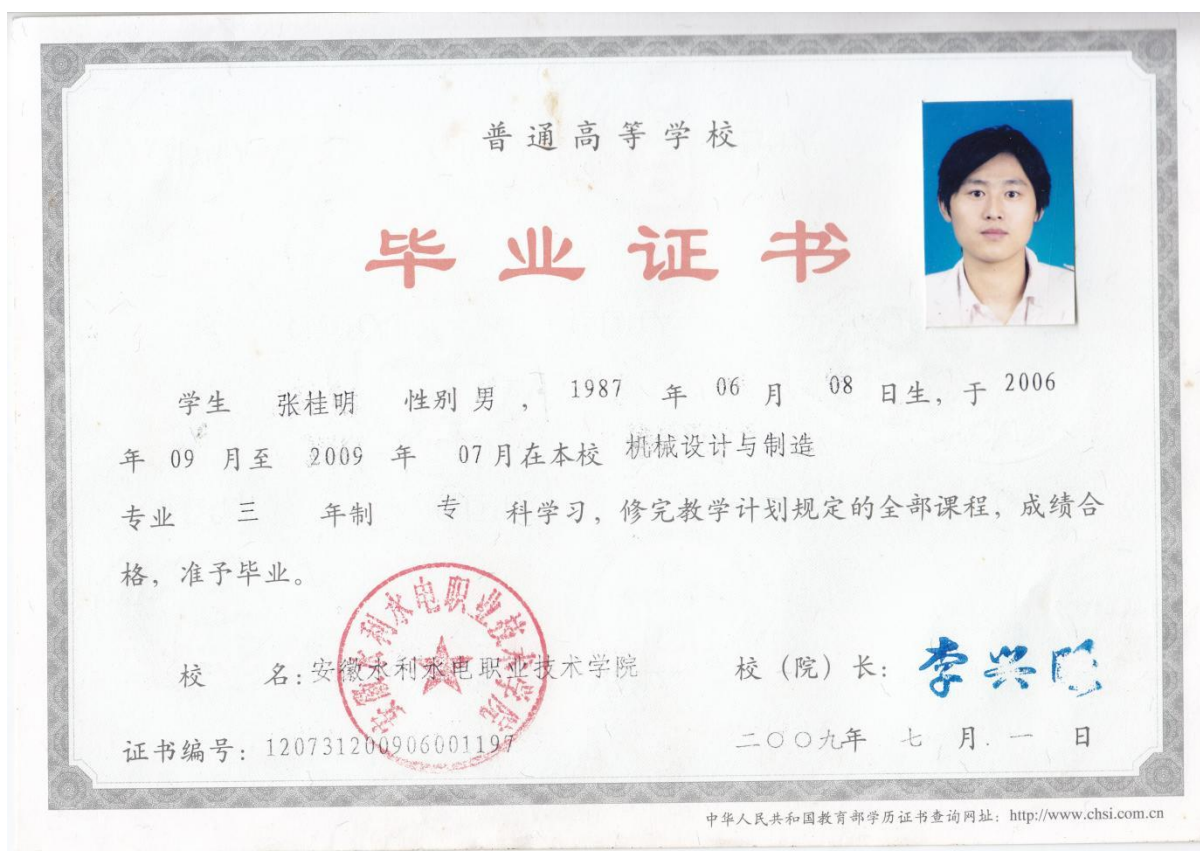 普通高等学校
毕业证书
学生 张桂明 性别 男 ， 1987 年 06 月 08 日生，于 2006
年 09 月至 2009 年 07 月在本校 机械设计与制造
专业 三 年制 专 科学习，修完教学计划规定的全部课程，成绩合
格，准予毕业。
安徽水利水电职业技术学院
校 名：安徽水利水电职业技术学院 校（院）长：李兴旺
证书编号：120731200906001197 二〇〇九年 七 月 一 日
中华人民共和国教育部学历证书查询网址：http://www.chsi.com.cn